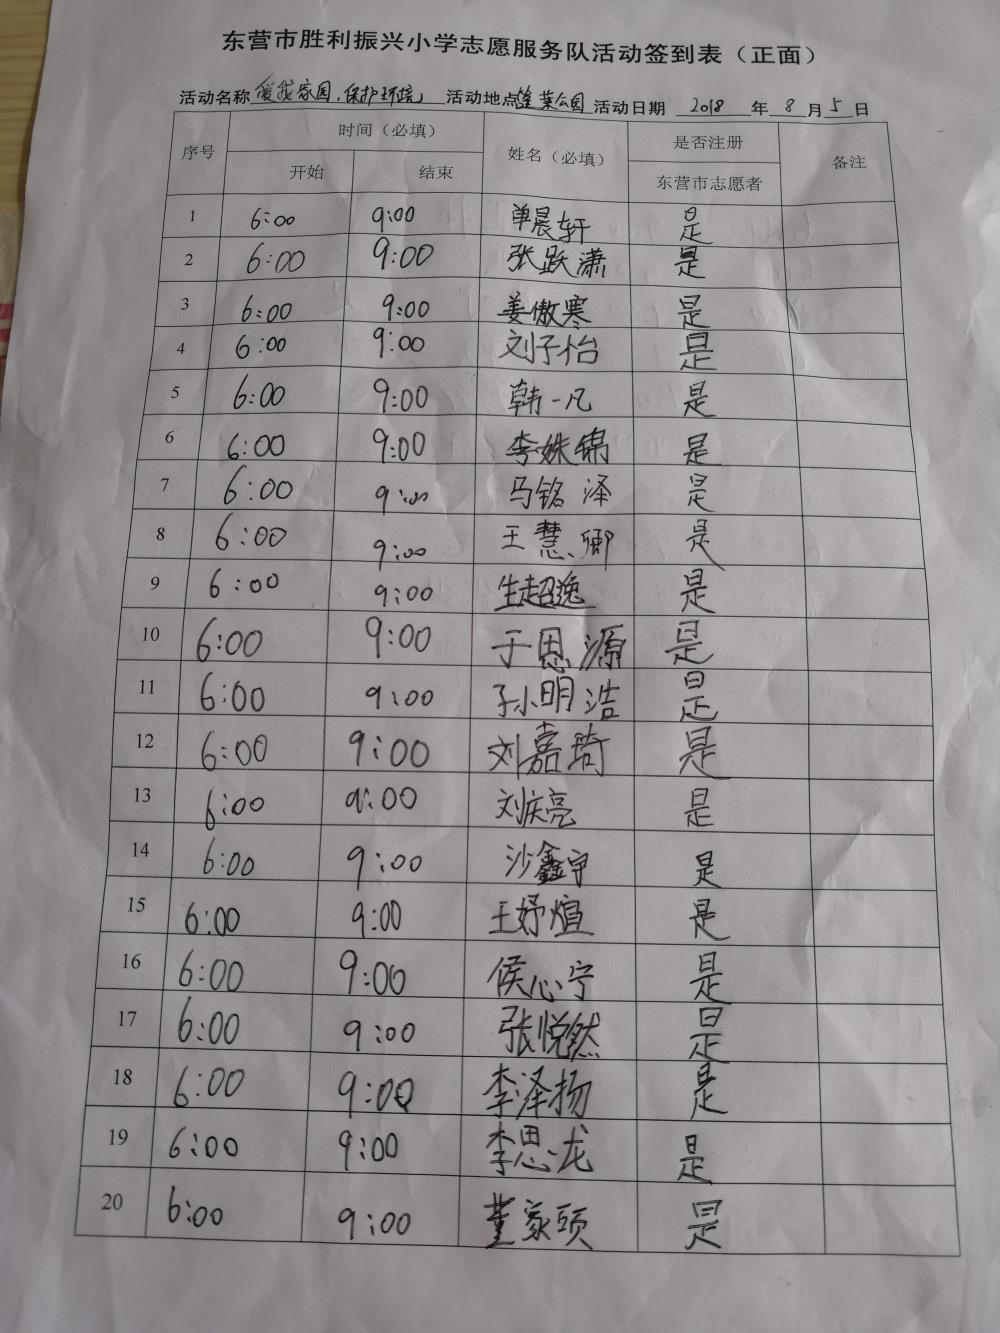 东营市胜利振兴小学志愿服务队活动签到表（正面）
活动名称 爱我家园，保护环境 活动地点 公园 活动日期 2018 年 8 月 5 日
序号 时间（必填） 姓名（必填） 是否注册 备注
开始 结束 东营市志愿者
1 6:00 9:00 单晨轩 是
2 6:00 9:00 张跃潇 是
3 6:00 9:00 姜傲寒 是
4 6:00 9:00 刘子怡 是
5 6:00 9:00 韩一凡 是
6 6:00 9:00 李姝锦 是
7 6:00 9:00 马铭泽 是
8 6:00 9:00 王慧卿 是
9 6:00 9:00 生超逸 是
10 6:00 9:00 于恩源 是
11 6:00 9:00 孙明浩 是
12 6:00 9:00 刘嘉琦 是
13 6:00 9:00 刘庆亮 是
14 6:00 9:00 沙鑫宇 是
15 6:00 9:00 王妤煊 是
16 6:00 9:00 侯心宁 是
17 6:00 9:00 张悦然 是
18 6:00 9:00 李泽扬 是
19 6:00 9:00 李思龙 是
20 6:00 9:00 董家 是